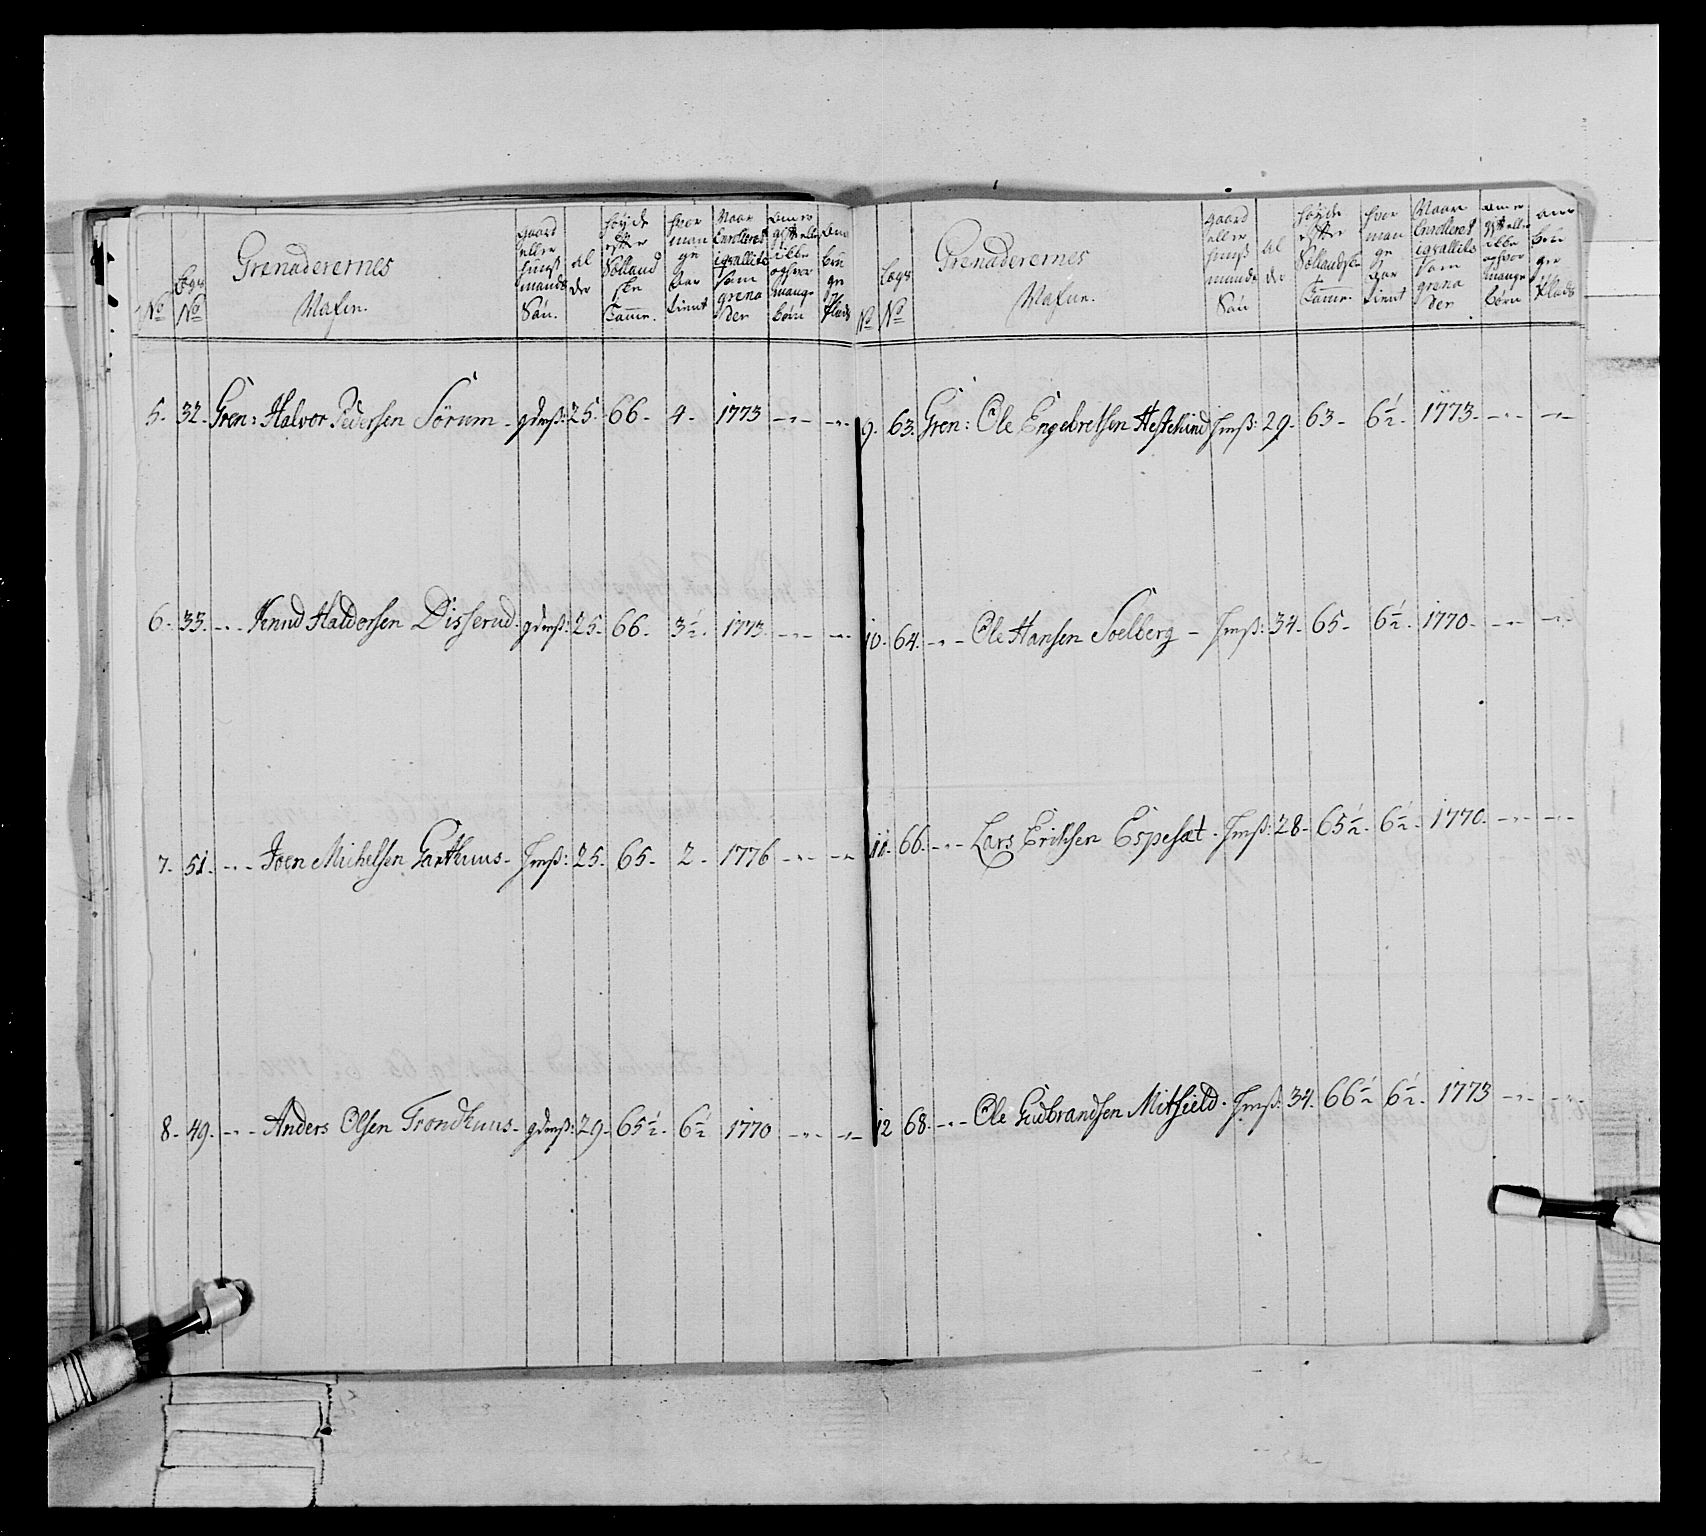 No
Lægs No
Grenaderernes
Nafn.
gaard eller huus mands Søn.
Alder
høyde efter Sollandske Tomme.
hvor mange Aar tient
Naar Enrolleret som grenader
om er gift eller ikke og hvor mange børn
Plads
5. 32. Gren: Halvor Pedersen Sørum - gdmß: 25. 66 - 4 - 1773 -"- -"-
6. 33. -"- Knud Haldorsen Disserud. gdmß: 25. 66. 3½. 1773. -"- -"-
7. 51. -"- Joen Michelsen Garthuus - Hmß: 25. 65 - 2 - 1776 -"- -"-
8. 49. -"- Anders Olsen Trondhuus - gdmß: 29 - 65½ - 6½ 1770 -"- -"-
No
Lægs No
Grenaderernes
Nafne.
gaard eller huus mands Søn
Alder
høyde efter Tomme.
hvor mange Aar tient
Naar Enrolleret som grenader
om er gift eller ikke og hvor mange børn
Plads
9. 63. Gren: Ole Engebretsen Hestehind Hmß: 29. 63 - 6½ - 1773 -"- -"-
10. 64. -"- Ole Hansen Soelberg - Hmß: 34. 65 - 6½. 1770. -"- -"-
11. 66. -"- Lars Erichsen Espeset. Hmß: 28 - 65½ - 6½ - 1770. -"- -"-
12 68. -"- Ole Gudbrandsen Mitfield. Hmß: 34. 66½ 6½. 1773 -"- -"-